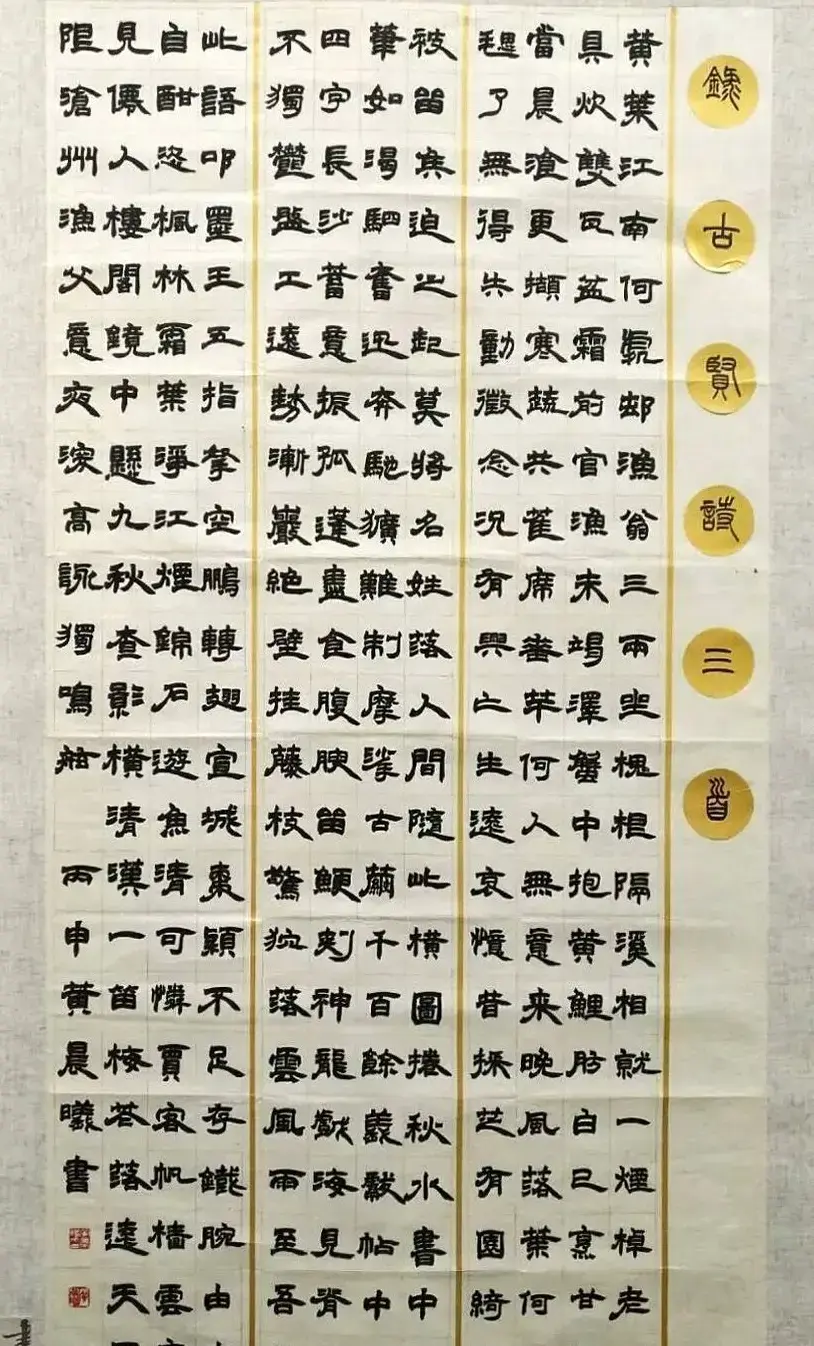 錄古賢詩三首
黃葉江南何處邨漁翁三兩坐槐根隔溪相就一煙棹老
具炊雙瓦盆霜前官漁未竭澤蟹中抱黃鯉肪白已烹甘
當晨飡更擷寒蔬共萑席垂竿何人無意來晚風落葉何
毸了無得失動微念況有興亡生遠哀憶昔採芝有園綺
被留侯迫之起莫將名姓落人間隨此橫圖捲秋水書中
筆如渴驥奮迅奔馳獷難制摩挲古繭千百餘羲獻帖中
四字長沙蓄意振孤蓬盡食腹腴留鯁刺神龍戲海見脊
不獨鬱盤工遠勢漸巖絕壁挂藤枝驚狖落雲風雨至吾
此語叩墨王五指拏空鵬轉翅宣城棗穎不足存鐵腕由
自酣恣楓林霜葉淨江煙錦石遊魚清可憐賈客帆檣雲
見僊人樓閣鏡中懸九秋查影橫清漢一笛梅花落遠天
阻滄州漁父意夜深高詠獨鳴舷
丙申黃晨曦書